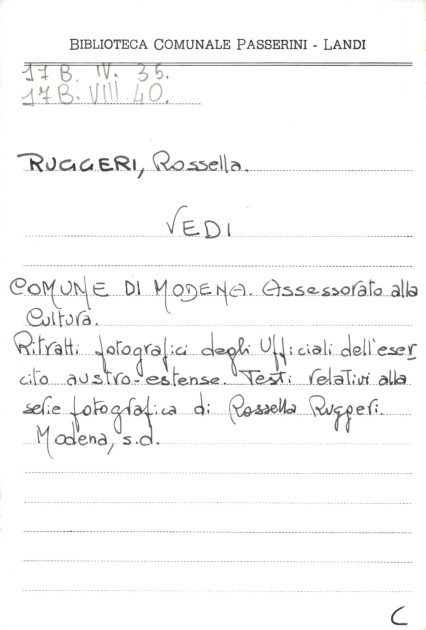 BIBLIOTECA COMUNALE PASSERINI - LANDI
17 B. IV. 35.
17 B. VIII 40.
RUGGERI, Rossella.
VEDI
COMUNE DI MODENA. Assessorato alla
Cultura.
Ritratti fotografici degli Ufficiali dell'eser
cito austro-estense. Testi relativi alla
serie fotografica di Rossella Ruggeri.
Modena, s.d.
C